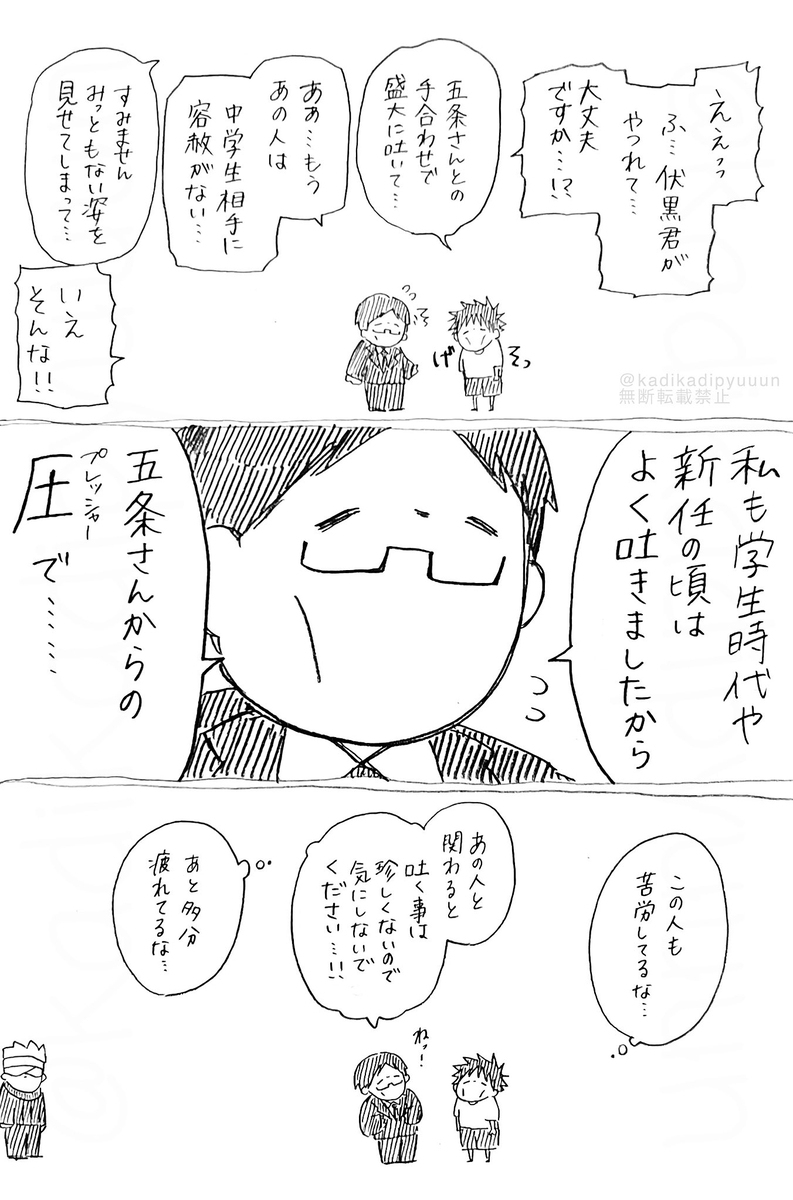 ええっっ
ふ…伏黒君が
やつれて…
大丈夫
ですか…!?
五条さんとの
手合わせで
盛大に吐いて…
ああ…もう
あの人は
中学生相手に
容赦がない…
すみません
みっともない姿を
見せてしまって…
いえ
そんな!!
げっそっ
@kadikadipyuuun
無断転載禁止
私も学生時代や
新任の頃は
よく吐きましたから
五条さんからの
圧で……
プレッシャー
この人も
苦労してるな…
あの人と
関わると
吐く事は
珍しくないので
気にしないで
ください…!!
ねっ!
あと多分
疲れてるな…